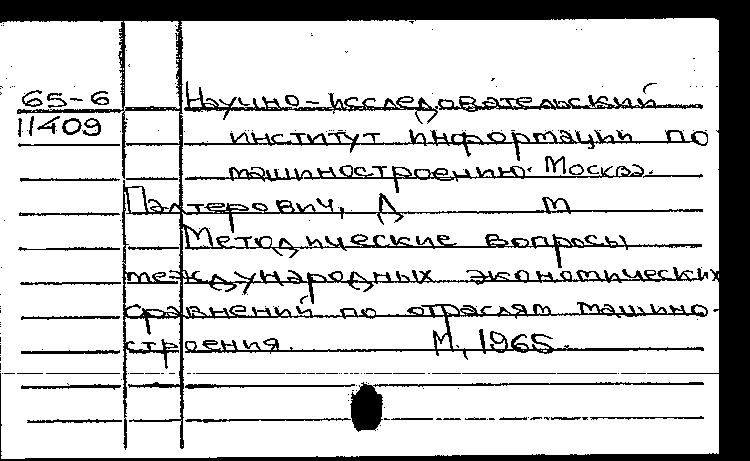 65-6 Научно-исследовательский
11409 институт информации по
машиностроению. Москва.
Палтерович, Д М
Методические вопросы
международных экономических
сравнений по отраслям машино-
строения. М., 1965.